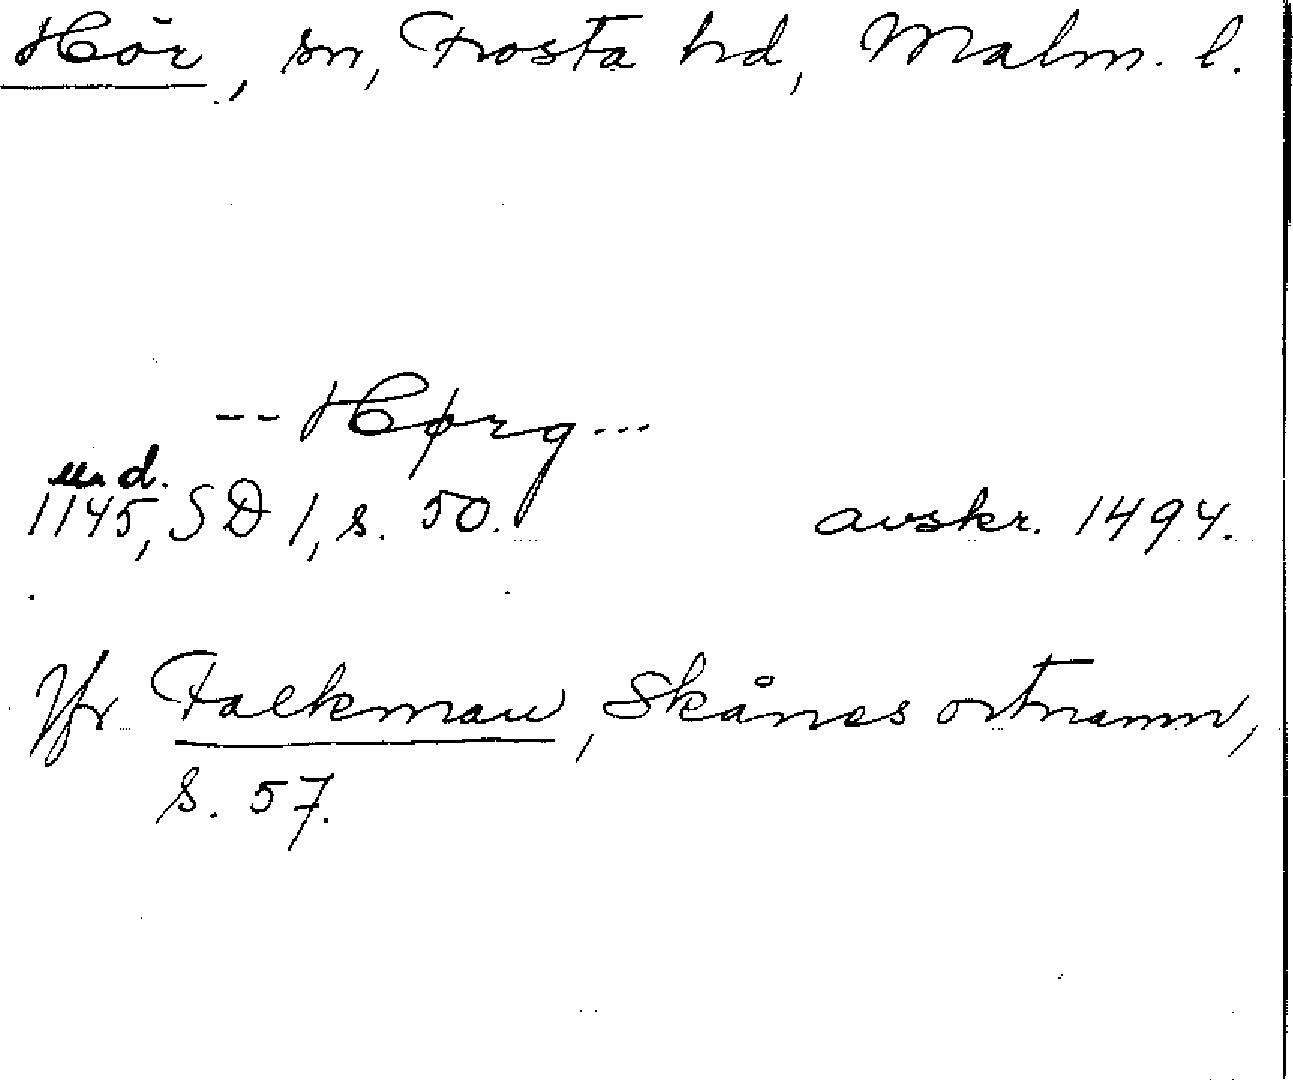 Hör, sn, Frosta hd, Malm. l.
-- Hørg...
und.
1145, SD 1, s. 50. avskr. 1494.
Jfr Falkman, Skånes ortnamn,
s. 57.